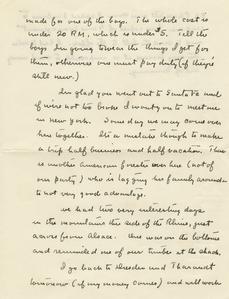 made for one of the boys. The whole cost is
under 20 RM, which is under $5. Tell the
boys I'm going to wear the things I get for
them, otherwise one must pay duty (if they're
still new.)
I'm glad you went out to Santa Fe and
if we're not too broke I want you to meet me
in New York. Some day we may come over
here together. It's a mistake though to make
a trip half business and half vacation. There
is another American forester over here (not of
our party) who is lugging his family around
to not very good advantage.
We had two very interesting days
in the mountains this side of the Rhine, just
across from Alsace. This was on the bottoms
and reminded me of our timber at the shack.
I go back to Dresden and Tharandt
tomorrow (if my money comes) and will work